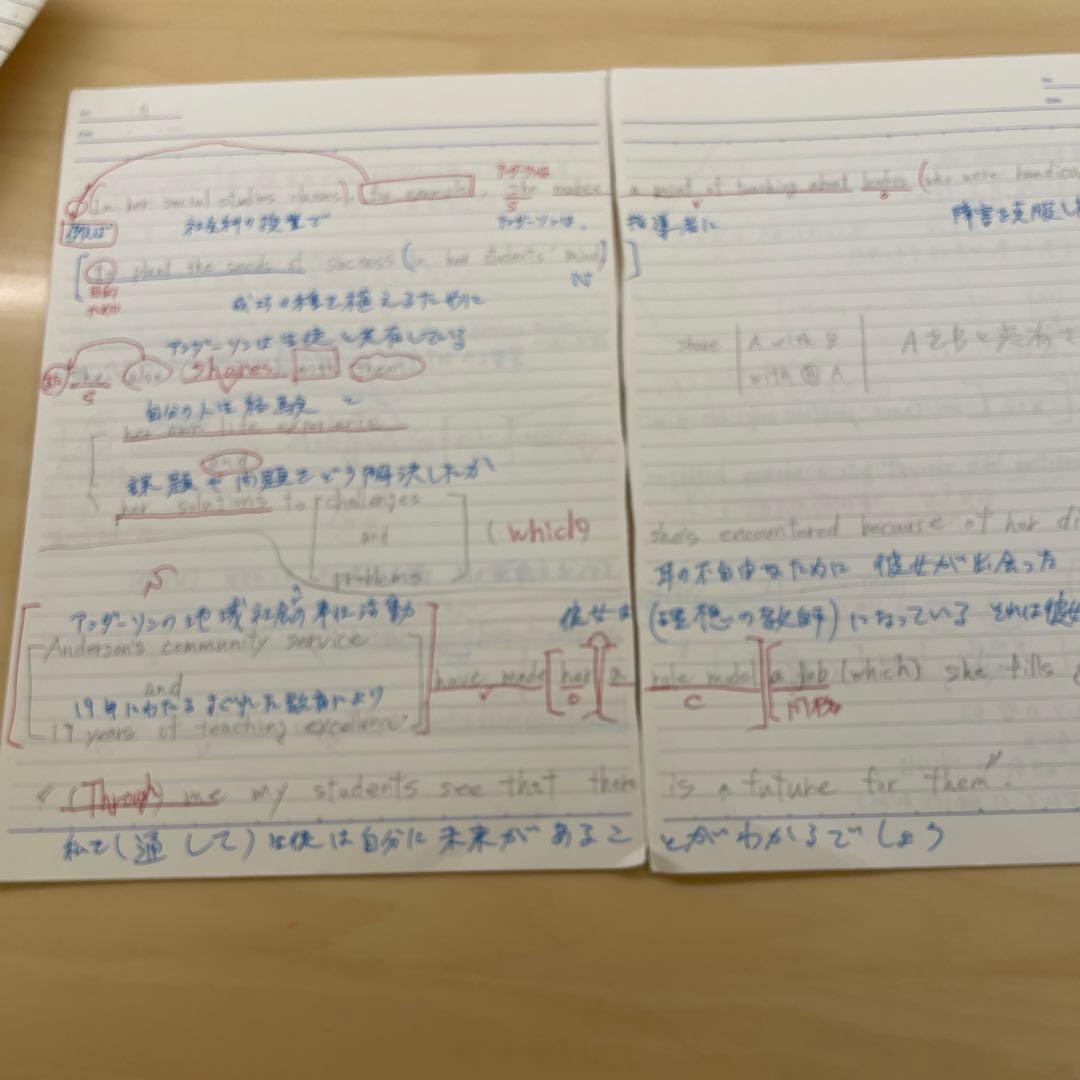 アンダーソンは
(In her social studies classes), for example, she makes a point of teaching about leaders (who were handica
S V O
例えば 社会科の授業で アンダーソンは、 指導者に 障害を克服した
[To plant the seeds of success (in her students' mind)]
目的
ために
成功の種を植えるために
アンダーソンは生徒と共有している
また she also (shares) with them
S V
share | A with B | AをBと共有
with B A
自分の人生経験と
her own life experience
and
課題や問題をどう解決したか
her solutions to [challenges
and
problems] (which) she's encountered because of her di
耳の不自由なために 彼女が出会った
S
アンダーソンの地域社会の奉仕活動 彼女は (理想の教師) になっている それは彼女
[Anderson's community service
and
19年にわたるすぐれた教育により
19 years of teaching excellence] have made [her a role model] [a job (which) she fills
V O C 同格
"(Through) me my students see that there is a future for them".
私を(通して)生徒は自分に未来があることがわかるでしょう